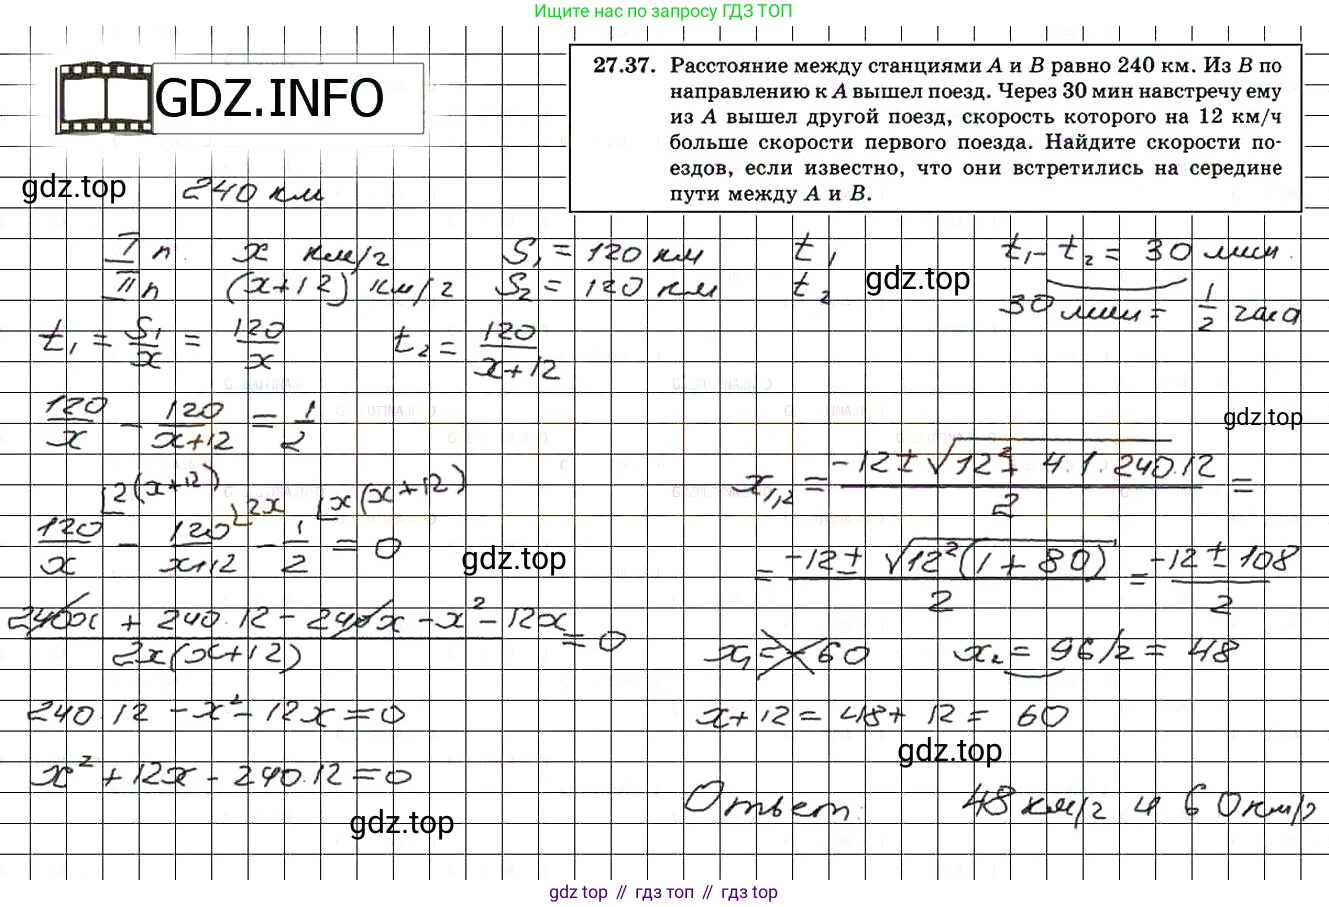 Ищите нас по запросу ГДЗ ТОП
GDZ.INFO
27.37. Расстояние между станциями A и B равно 240 км. Из B по
направлению к A вышел поезд. Через 30 мин навстречу ему
из A вышел другой поезд, скорость которого на 12 км/ч
больше скорости первого поезда. Найдите скорости по-
ездов, если известно, что они встретились на середине
пути между A и B.
gdz.top
240 км
I п. x км/ч S₁ = 120 км t₁ t₁ - t₂ = 30 мин.
II п (x+12) км/ч S₂ = 120 км t₂
gdz.top
30 мин = 1/2 часа
t₁ = S₁/x = 120/x t₂ = 120/(x+12)
120/x - 120/(x+12) = 1/2
gdz.top
120/x - 120/(x+12) - 1/2 = 0
2(x+12) 2x x(x+12)
gdz.top
(240x + 240·12 - 240x - x² - 12x)/(2x(x+12)) = 0
240·12 - x² - 12x = 0
x² + 12x - 240·12 = 0
gdz.top
x₁,₂ = (-12 ± √(12² + 4·1·240·12))/2 =
= (-12 ± √(12²(1 + 80)))/2 = (-12 ± 108)/2
x₁ = -60 x₂ = 96/2 = 48
x + 12 = 48 + 12 = 60
gdz.top
Ответ: 48 км/ч и 60 км/ч
gdz top // гдз топ // гдз top